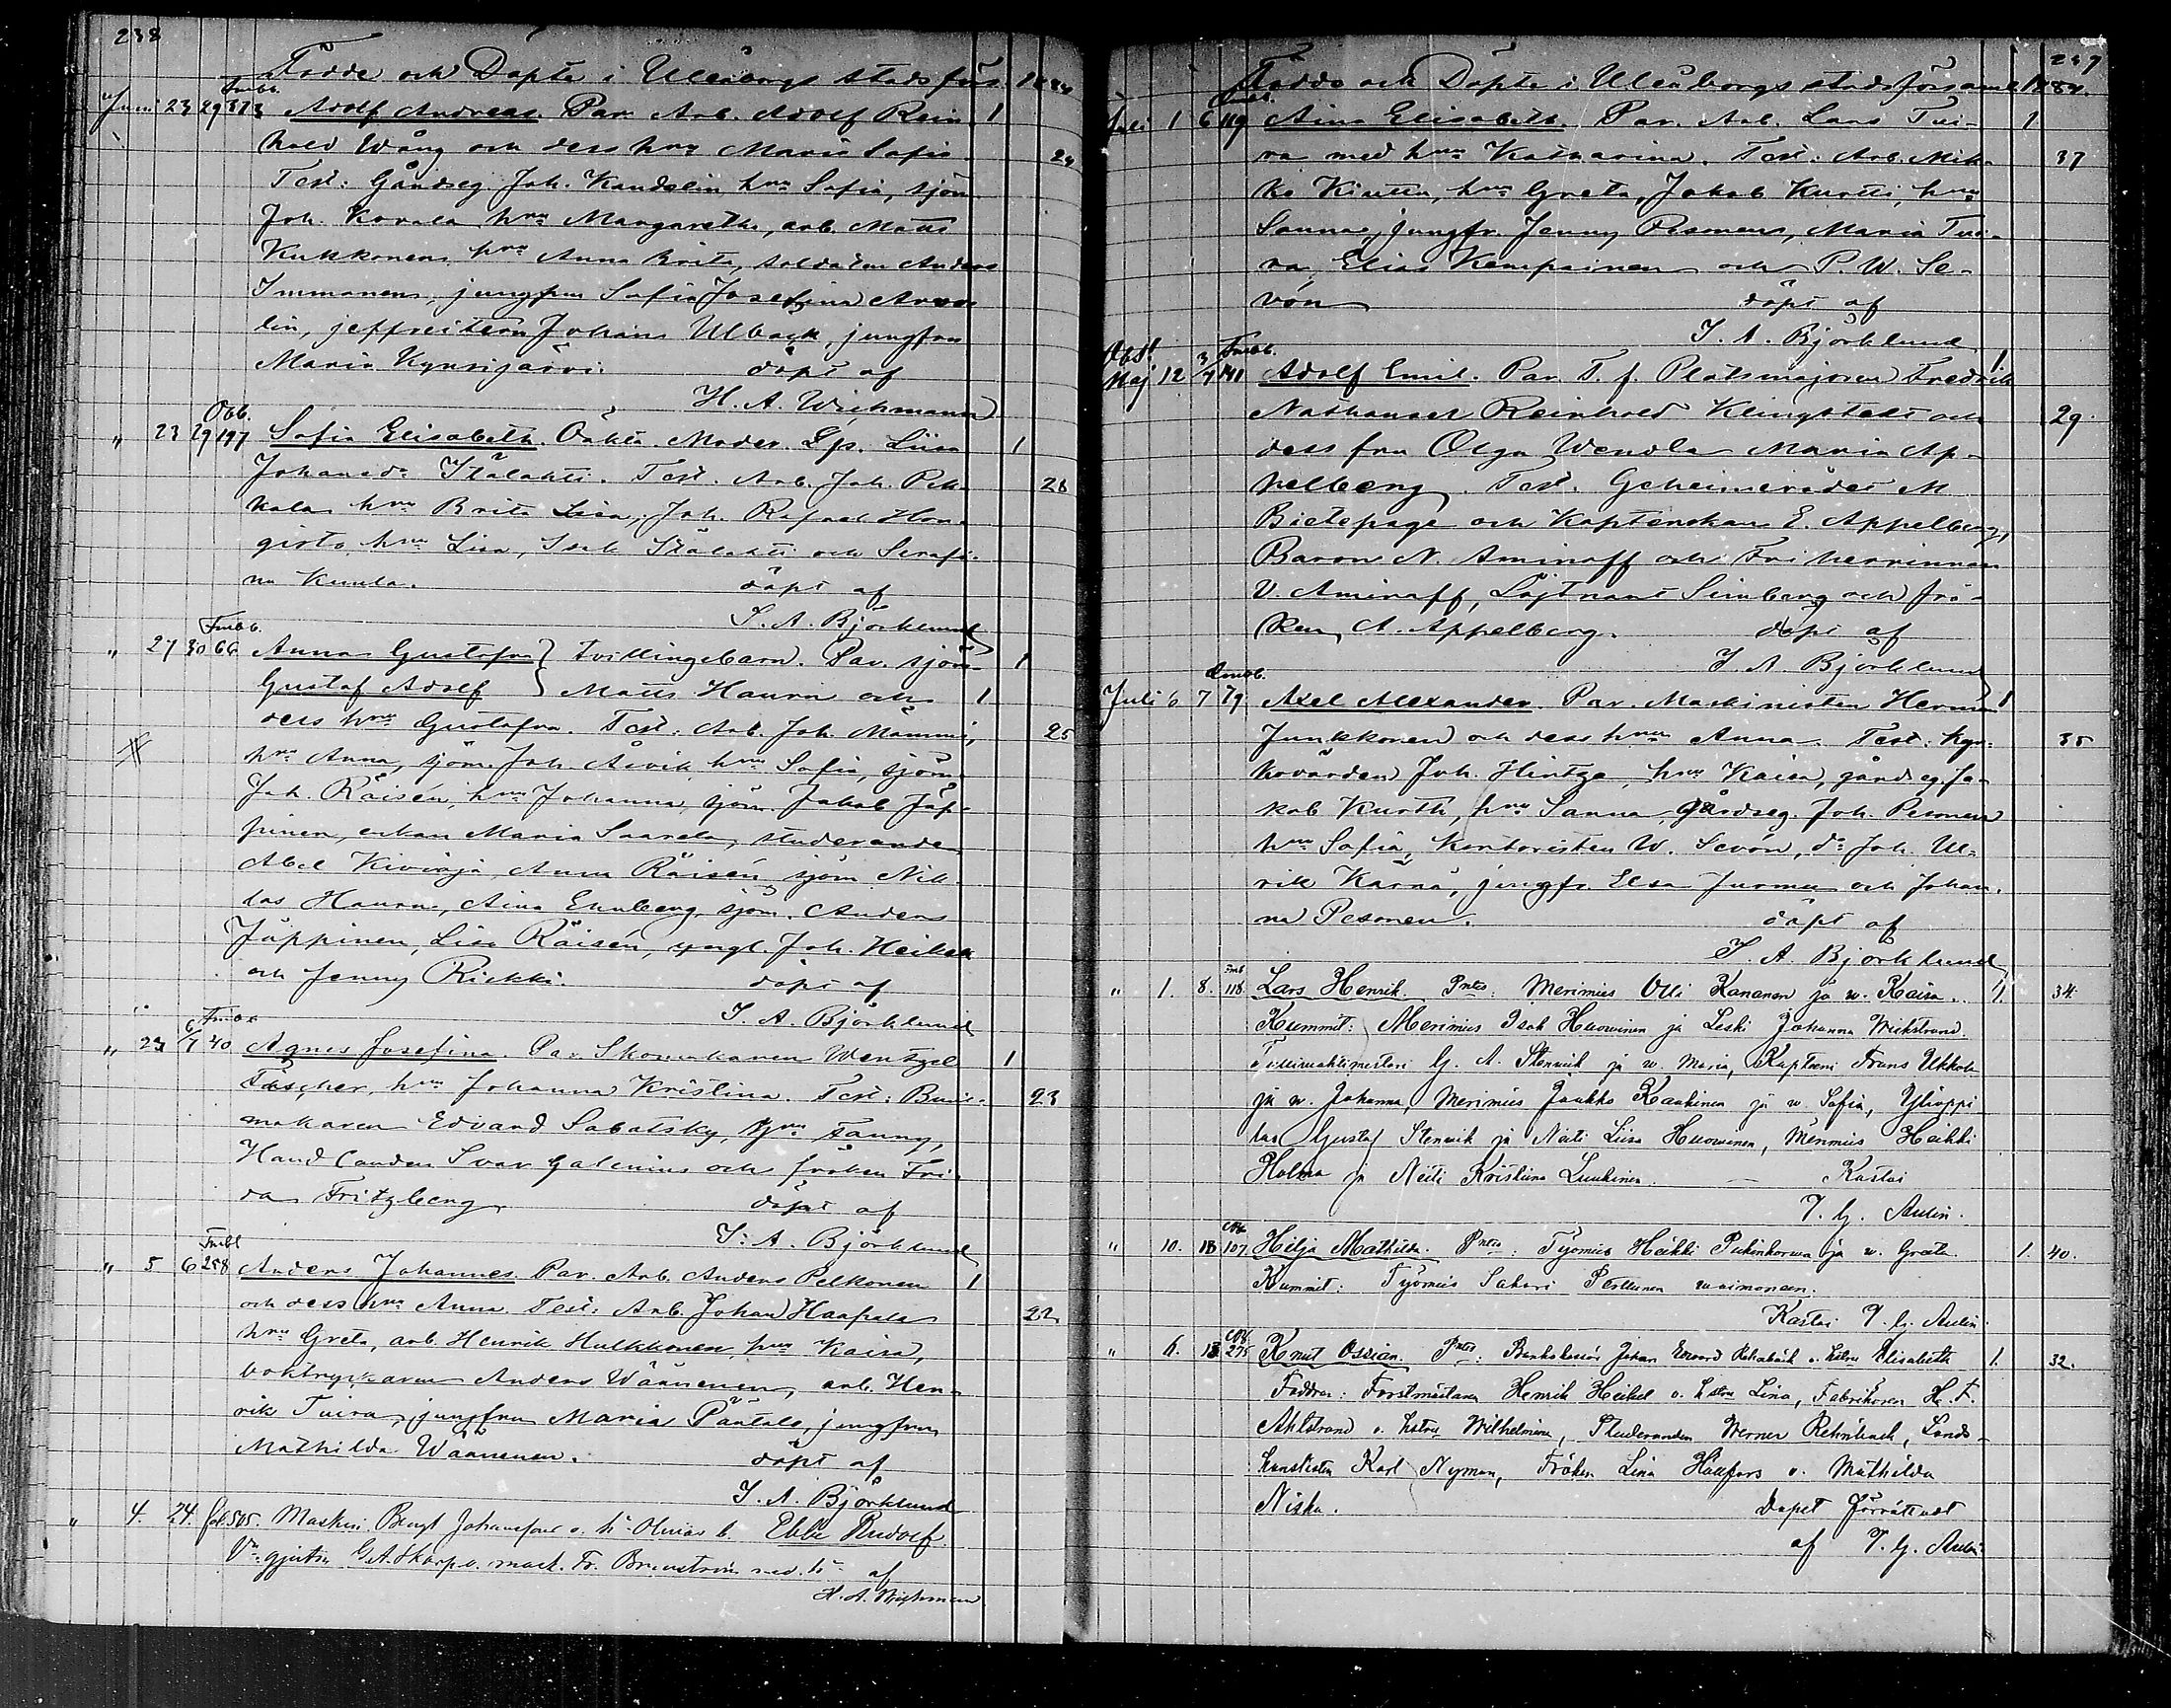 238
Födde och Döpte i Uleåborgs stadsförs. 1884
Fmbb.
Juni 23 29 373 Adolf Andreas. Par. Arb. Adolf Rein- 1
hold Wång och dess hru Maria Sofia 24
Test: Gårdseg Joh. Kandelin, hru Sofia, sjöm.
Joh. Korala hru Margaretha, arb. Matts
Kukkonen, hru Anna Brita, soldaten Anders
Immonen, jungfrun Sofia Josefina
lin, jeffreitern Johan Ulback, jungfrun
Maria Kynsijärvi. döpt af
H. A. Wichmann
Obb.
" 23 29 197 Sofia Elisabeth. Oäkta. Moder. Lp. Liisa 1
Johansdr Itälahti. Test. Arb. Joh. Pek- 28
kala hru Brita Lisa, Joh. Rafael Hon-
gisto, hru Lisa, Isak Itälahti och Serafi-
na Kunla. döpt af
I. A. Björklund
Fmbb.
" 27 30 66 Anna Gustafva } Tvillingebarn. Par. sjöm. 1
Gustaf Adolf } Matts Hauru och 1
dess hru Gustafva. Test: Arb. Joh. Mammi, 25
hru Anna, sjöm. Joh. Åivik, hru Sofia, sjöm.
Joh. Räisén, hru Johanna, sjöm. Jakob Jäp-
pinen, enkan Maria Saarela, studeranden
Abel Kivioja, Anna Räisén, sjöm. Nik-
las Hauru, Aina Enberg, sjöm. Anders
Jäppinen, Lisa Räisén, yngl. Joh. Heikel
och Jenny Rickki. döpt af
I. A. Björklund
Fmbb
" 23 6/7 40 Agnes Josefina. Par. Skomakaren Wentzel 1
Tascher, hru Johanna Kristina. Test: Bunt- 23
makaren Edvard Sabatsky, hru Fanny,
Hand.Conden Svar Galenius och fröken Fri-
da Fritzberg. döpt af
I. A. Björklund
Fmbb
" 5 6 258 Anders Johannes. Par. Arb. Anders Pelkonen 1
och dess hru Anna. Test: Arb. Johan Haapala 22
hru Greta, arb. Henrik Hulkkonen, hru Kaisa,
boktryckaren Anders Wäänenen, arb. Hen-
rik Tuira, jungfrun Maria Päätalo, jungfrun
Mathilda Wäänenen. döpt af
I. A. Björklund
" 4. 24. fol. 505. Maskin. Bengt Johansson o. h. Olivia b. Ebbe Rudolf
gjutn G.A. Skarp o. mask. Fr. Brunström med h. af
H. A. Wichmann
239
Födde och Döpte i Uleåborgs stadsförsaml. 1884.
Fmb.
Juli 1 6 119 Aina Elisabeth. Par. Arb. Lars Tui- 1
ra med hru Katharina. Test: Arb. Mik- 37
ko Kiutta, hru Greta, Jakob Kurtti, hru
Sanna, jungfr. Jenny Pesonen, Maria Tui-
ra, Elias Kempainen och P. W. Se-
vón döpt af
I. A. Björklund
Obs! Fmbb.
Maj 12 3/7 141 Adolf Emil. Par. T. f. Platsmajoren Fredrik 1
Nathanael Reinhold Klingstedt och 29
dess fru Olga Wendla Maria Ap-
pelberg. Test. Geheimerådet M
Bietepage och Kaptenskan E. Appelberg,
Baron N. Aminoff och Friherrinnan
V. Aminoff, Löjtnant Simberg och frö-
ken A. Appelberg. döpt af
I. A. Björklund
Fmbb.
Juli 6 7 79 Axel Alexander. Par. Maskinisten Herman 1
Junkkonen och dess hru Anna. Test: Kyr- 35
kovärden Joh. Hintza, hru Kaisa, gårdseg. Ja-
kob Kurtti, hru Sanna, gårdseg. Joh. Pesonen
hru Sofia, Kontoristen W. Sevón, do Joh. Ul-
rik Kärnä, jungfr. Elsa Jurmu och Johan-
na Pesonen. döpt af
I. A. Björklund
Fmb
" 1. 8. 118 Lars Henrik. Pntes: Merimies Olli Kananen ja w. Kaisa. 1. 34.
Kummit: Merimies Isak Huovinen ja Leski Johanna Wickstrand.
Tullivahtimestari G. A. Stenvik ja w. Maria, Kapteeni Frans Ukkola
ja w. Johanna, Merimies Jaakko Kaakinen ja w. Sofia, Ylioppi-
las Gustaf Stenvik ja Neiti Liisa Huovinen, Merimies Heikki
Holma ja Neiti Kristiina Luukinen. — Kastoi
T. G. Aulin.
" 10. 13 107 Hilja Mathilda. Pntes: Työmies Heikki Pukinkorva ja w. Greta. 1. 40.
Kummit: Työmies Sakari Perttunen waimoneen.
Kastoi T. G. Aulin.
" 6. 13 275 Knut Ossian. Pntes: Bankokassör Johan Edvard Rehnbäck o. hstru Elisabeth 1. 32.
Faddrar: Forstmästaren Henrik Heikel o. hstru Lina, Fabrikören H. F.
Ahlstrand o. hstru Wilhelmina, Studeranden Werner Rehnbäck, Lands-
kanslisten Karl Nyman, Fröken Lina Hällfors o. Mathilda
Niska. Dopet förrättadt
af T. G. Aulin